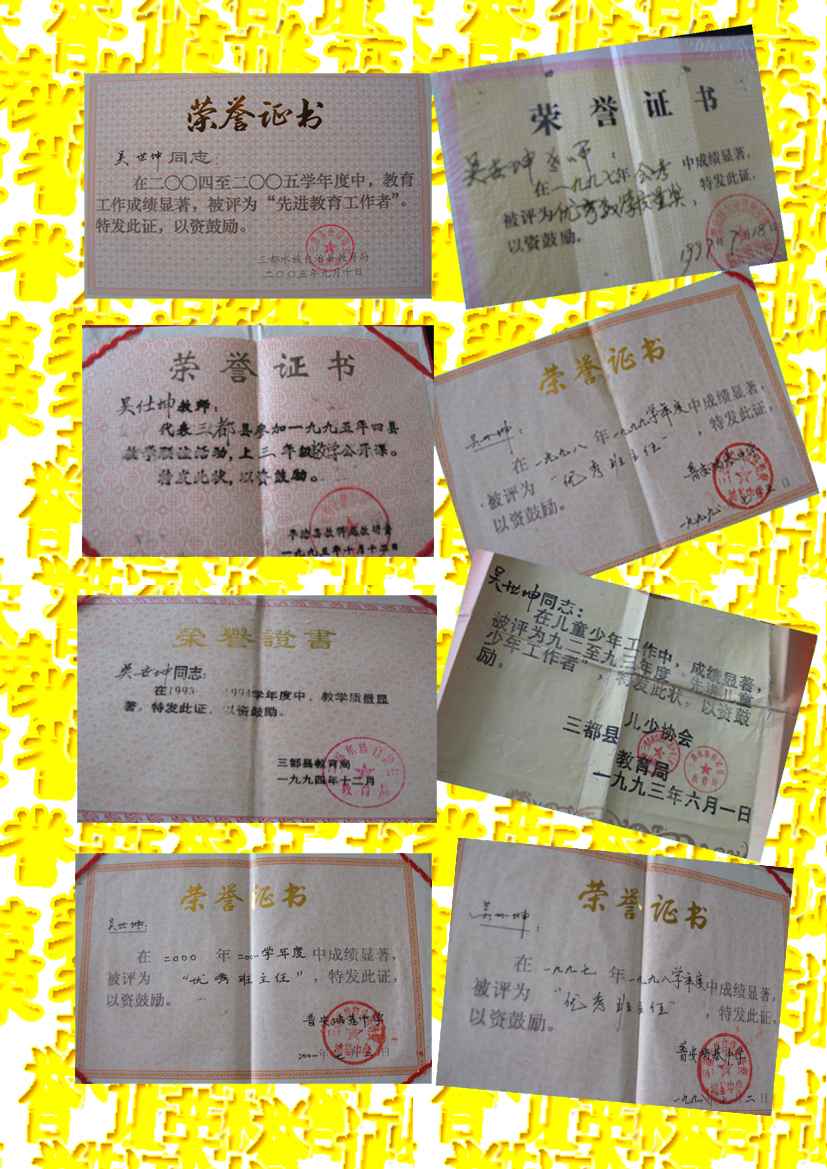 荣誉证书
吴世坤同志：
在二〇〇四至二〇〇五学年度中，教育
工作成绩显著，被评为“先进教育工作者”。
特发此证，以资鼓励。
三都水族自治县教育局
二〇〇五年九月十日
荣誉证书
吴世坤老师：
在一九九七年会考中成绩显著，
被评为优秀教学质量奖，特发此证，
以资鼓励。
1997年7月18日
荣誉证书
吴仕坤教师：
代表三都县参加一九九五年四县
教学联谊活动，上三年级数学公开课。
特发此状，以资鼓励。
一九九五年十月十二日
荣誉证书
吴世坤：
在一九九八年一九九九学年度中成绩显著，
被评为“优秀班主任”，特发此证，
以资鼓励。
普安鸿基中学
荣譽證書
吴世坤同志：
在1993 1994学年度中，教学质量显
著，特发此证，以资鼓励。
三都县教育局
一九九四年十二月
吴世坤同志：
在儿童少年工作中，成绩显著，
被评为九二至九三年度“先进儿童
少年工作者”，特发此状，以资鼓
励。
三都县儿少协会
教育局
一九九三年六月一日
荣誉证书
吴世坤：
在二000年二00一学年度中成绩显著，
被评为“优秀班主任”，特发此证，
以资鼓励。
普安鸿基中学
荣誉证书
吴世坤：
在一九九七年一九九八学年度中成绩显著，
被评为“优秀班主任”，特发此证，
以资鼓励。
普安鸿基中学